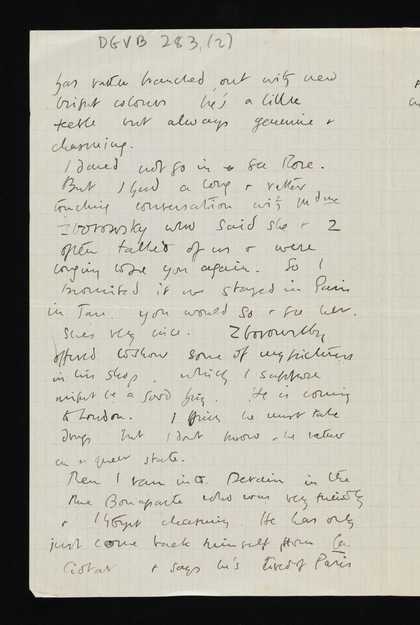 DGVB 283, (2)
has rather branched out with new
bright colours he's a little
feeble but always genuine &
charming.
I dared not go in to see Rose.
But I had a long & rather
touching conversation with Mdme
Zborowsky who said she & Z
often talked of us & were
longing to see you again. So I
promised if we stayed in Paris
in Jan. you would go & see her.
She's very nice. Zborowsky
offered to show some of my pictures
in his shop, which I suppose
might be a good thing. He is coming
to London. I think he must take
drugs but I don't know. he rather
in a queer state.
Then I ran into Derain in the
Rue Bonaparte who was very friendly
& I thought charming. He has only
just come back himself from La
Ciotat & says he's tired of Paris